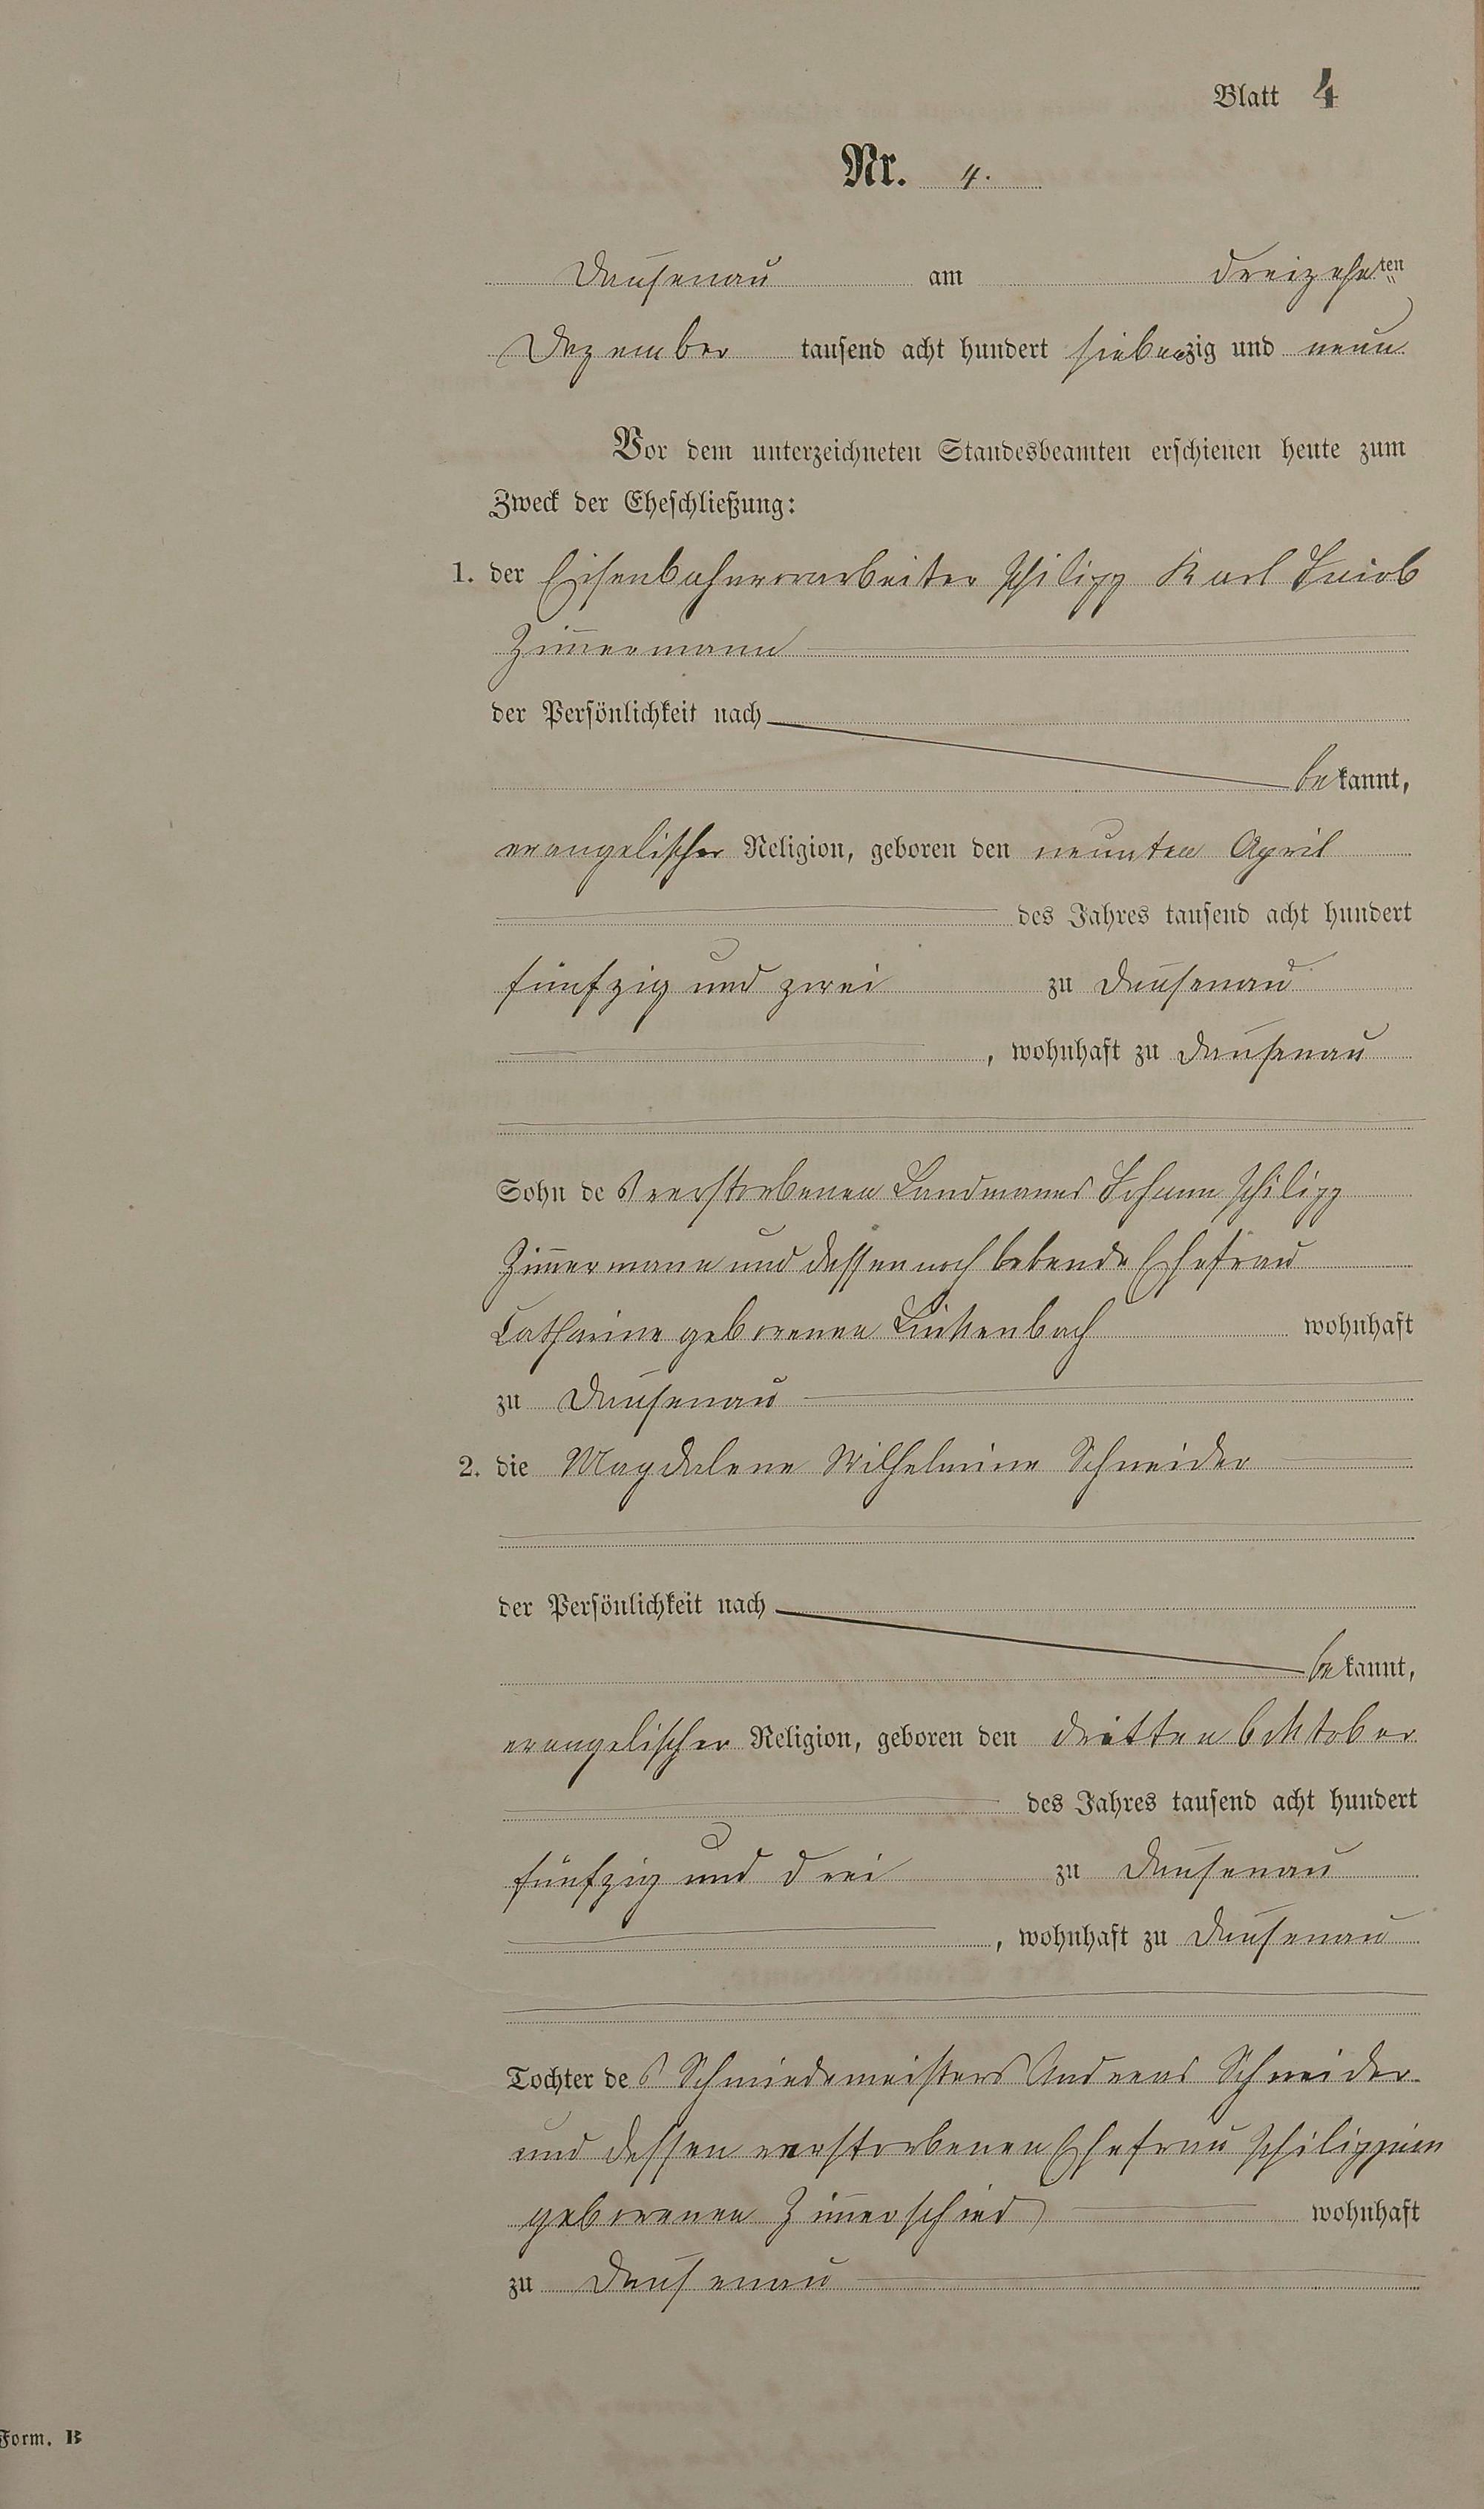 Blatt 4
Nr. 4.
Dausenau am dreizehnten
Dezember tausend acht hundert siebenzig und neun
Vor dem unterzeichneten Standesbeamten erschienen heute zum
Zweck der Eheschließung:
1. der Eisenbahnvorarbeiter Philipp Karl Jacob
Zimmermann
der Persönlichkeit nach
bekannt,
evangelischer Religion, geboren den neunten April
des Jahres tausend acht hundert
fünfzig und zwei zu Dausenau
, wohnhaft zu Dausenau
Sohn des verstorbenen Landmannes Johann Philipp
Zimmermann und dessen noch lebende Ehefrau
Catharine geborenen Linkenbach wohnhaft
zu Dausenau
2. die Magdalene Wilhelmine Schneider
der Persönlichkeit nach
bekannt,
evangelischer Religion, geboren den dritten Oktober
des Jahres tausend acht hundert
fünfzig und drei zu Dausenau
, wohnhaft zu Dausenau
Tochter des Schmiedemeisters Andreas Schneider
und dessen verstorbenen Ehefrau Philippine
geborenen Zimmerschied wohnhaft
zu Dausenau
Form. B